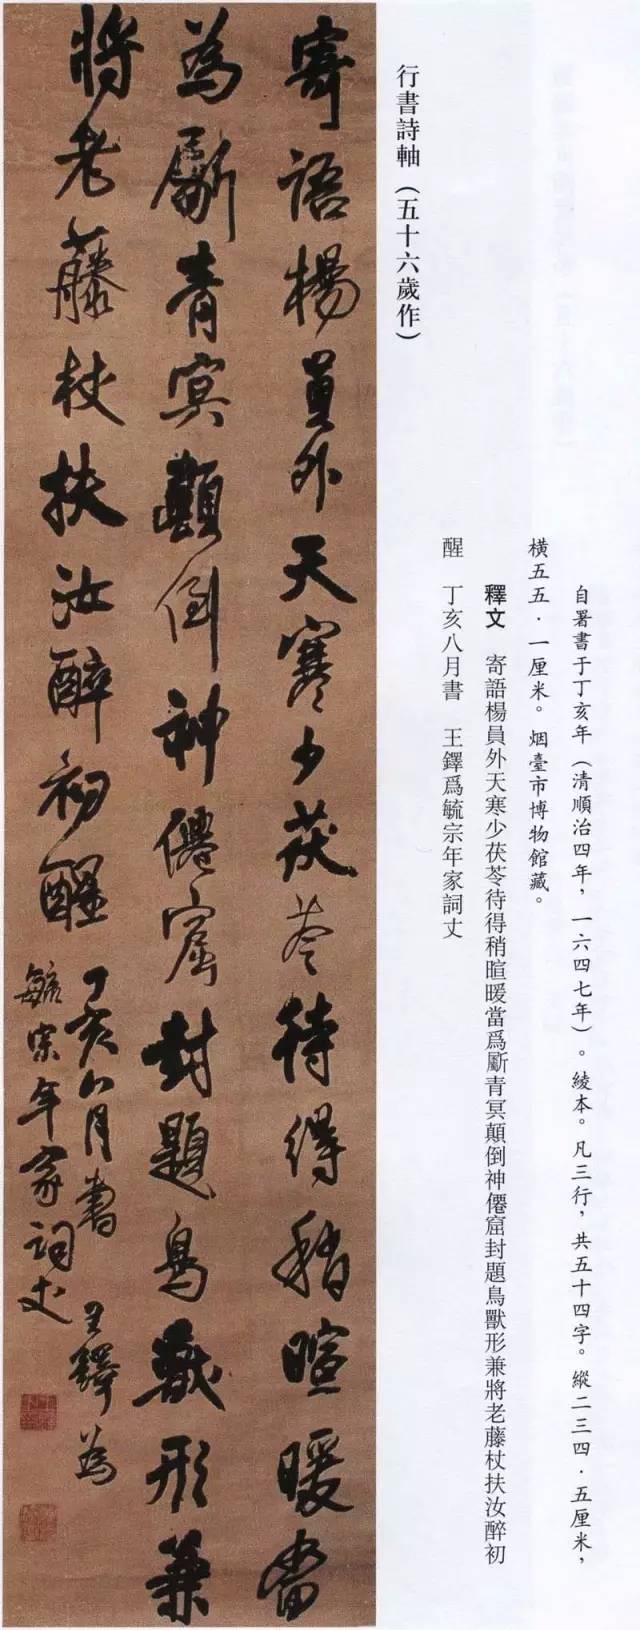 行書詩軸（五十六歲作）
自署書于丁亥年（清順治四年，一六四七年）。綾本。凡三行，共五十四字。縱二三四．五厘米，
橫五五．一厘米。烟臺市博物館藏。
釋文　寄語楊員外天寒少茯苓待得稍暄暖當爲斸青冥顛倒神僊窟封題鳥獸形兼將老藤杖扶汝醉初
醒　丁亥八月書　王鐸爲毓宗年家詞丈
寄語楊員外天寒少茯苓待得稍暄暖當
為斸青冥顛倒神僊窟封題鳥獸形兼
將老藤杖扶汝醉初醒
丁亥八月書 王鐸為
毓宗年家詞丈